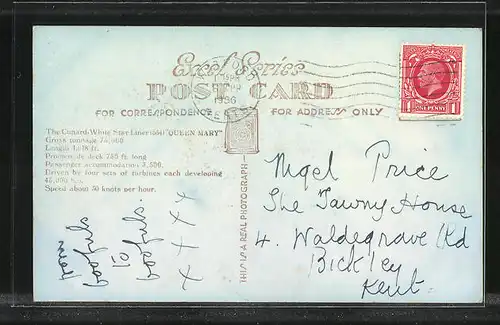 Excel Series
POST CARD
FOR CORRESPONDENCE
FOR ADDRESS ONLY
1936
ONE PENNY
The Cunard-White Star Liner "QUEEN MARY"
Gross tonnage
Length 1,018 ft.
Promenade deck 725 ft. long
Passenger accommodation
Driven by four sets of turbines each developing
Speed about 30 knots per hour.
THIS IS A REAL PHOTOGRAPH
x x x x
from
Nigel Price
The Tawny House
4. Waldegrave Rd
Bickley
Kent.